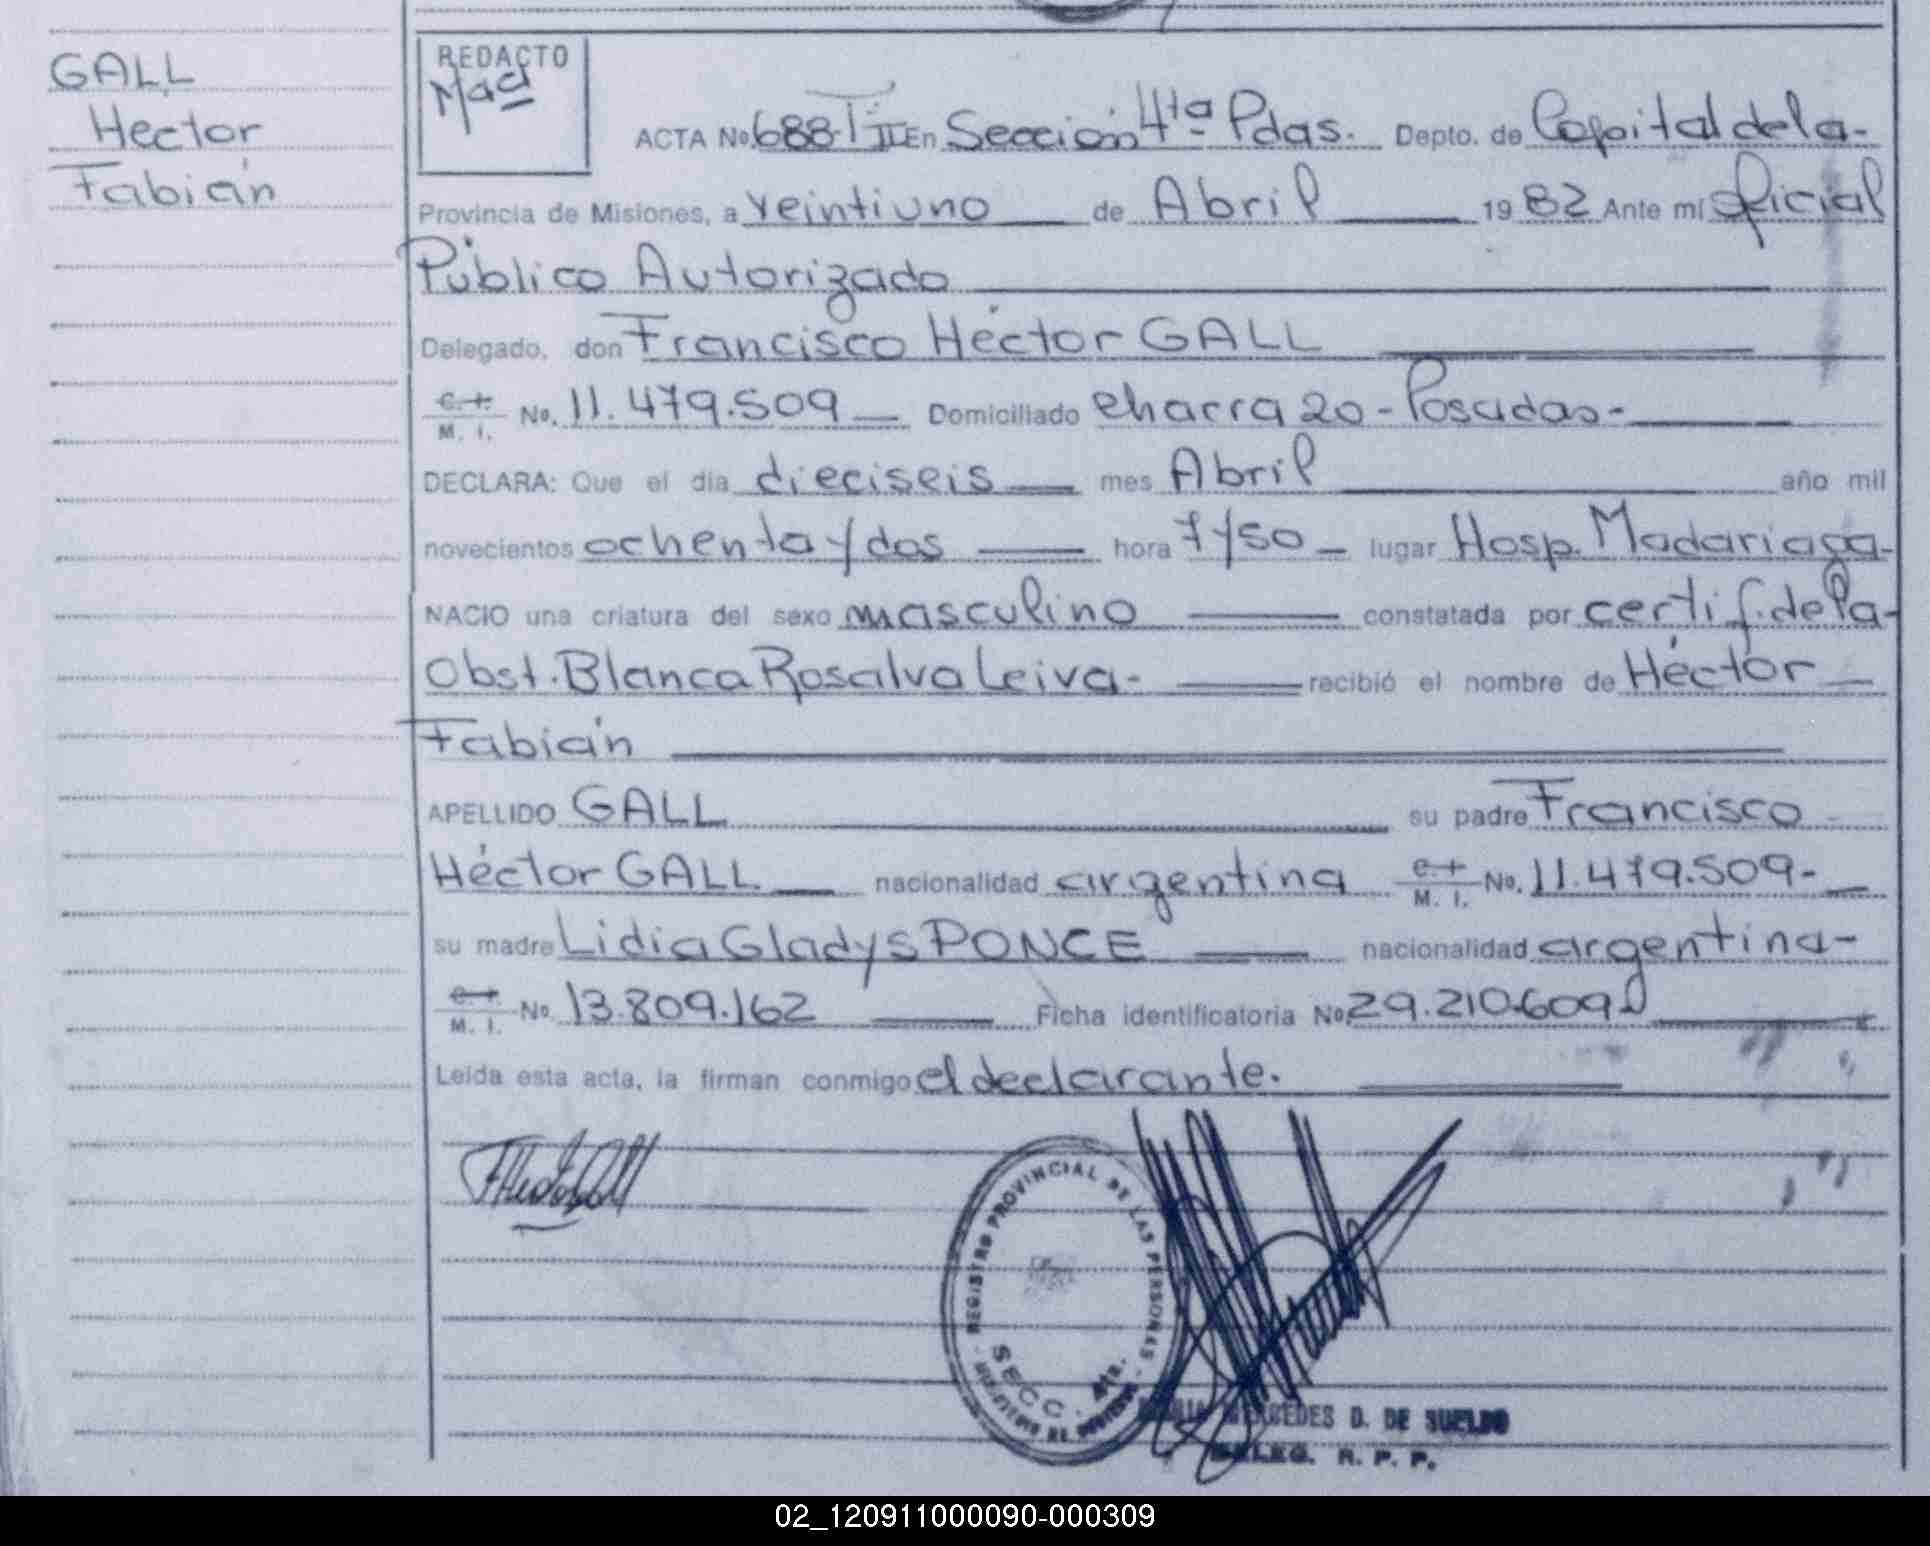 GALL
Hector
Fabián
REDACTO
ACTA No. 688-T II En Sección 4ta Pdas. Depto. de Capital de la-
Provincia de Misiones, a veintiuno de Abril 19 82 Ante mi Oficial
Público Autorizado
Delegado, don Francisco Héctor GALL
M. I. No. 11.479.509 Domiciliado chacra 20 - Posadas-
DECLARA: Que el dia dieciseis mes Abril año mil
novecientos ochenta y dos hora 7 y 50 lugar Hosp. Madariaga-
NACIO una criatura del sexo masculino constatada por certif. de la-
Obst. Blanca Rosalva Leiva- recibió el nombre de Héctor
Fabián
APELLIDO GALL su padre Francisco
Héctor GALL nacionalidad argentina M. I. No. 11.479.509-
su madre Lidia Gladys PONCE nacionalidad argentina-
M. I. No. 13.809.162 Ficha identificatoria No. 29.210.609
Leida esta acta, la firman conmigo el declarante.
REGISTRO PROVINCIAL DE LAS PERSONAS
SECC. 4ta.
MERCEDES D. DE SUELDO
DELEG. R. P. P.
02_120911000090-000309